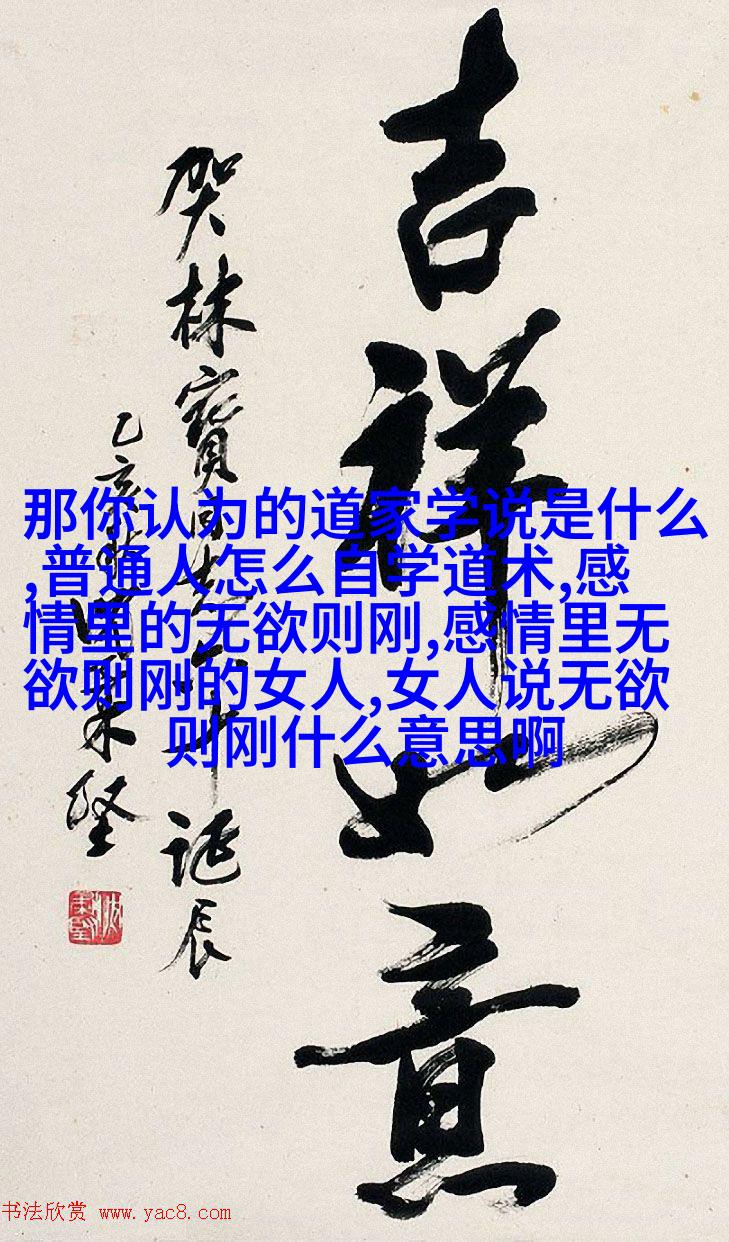 吉祥如意
贺林宝
诞辰
那你认为的道家学说是什么
,普通人怎么自学道术,感
情里的无欲则刚,感情里无
欲则刚的女人,女人说无欲
则刚什么意思啊
书法欣赏 www.yac8.com